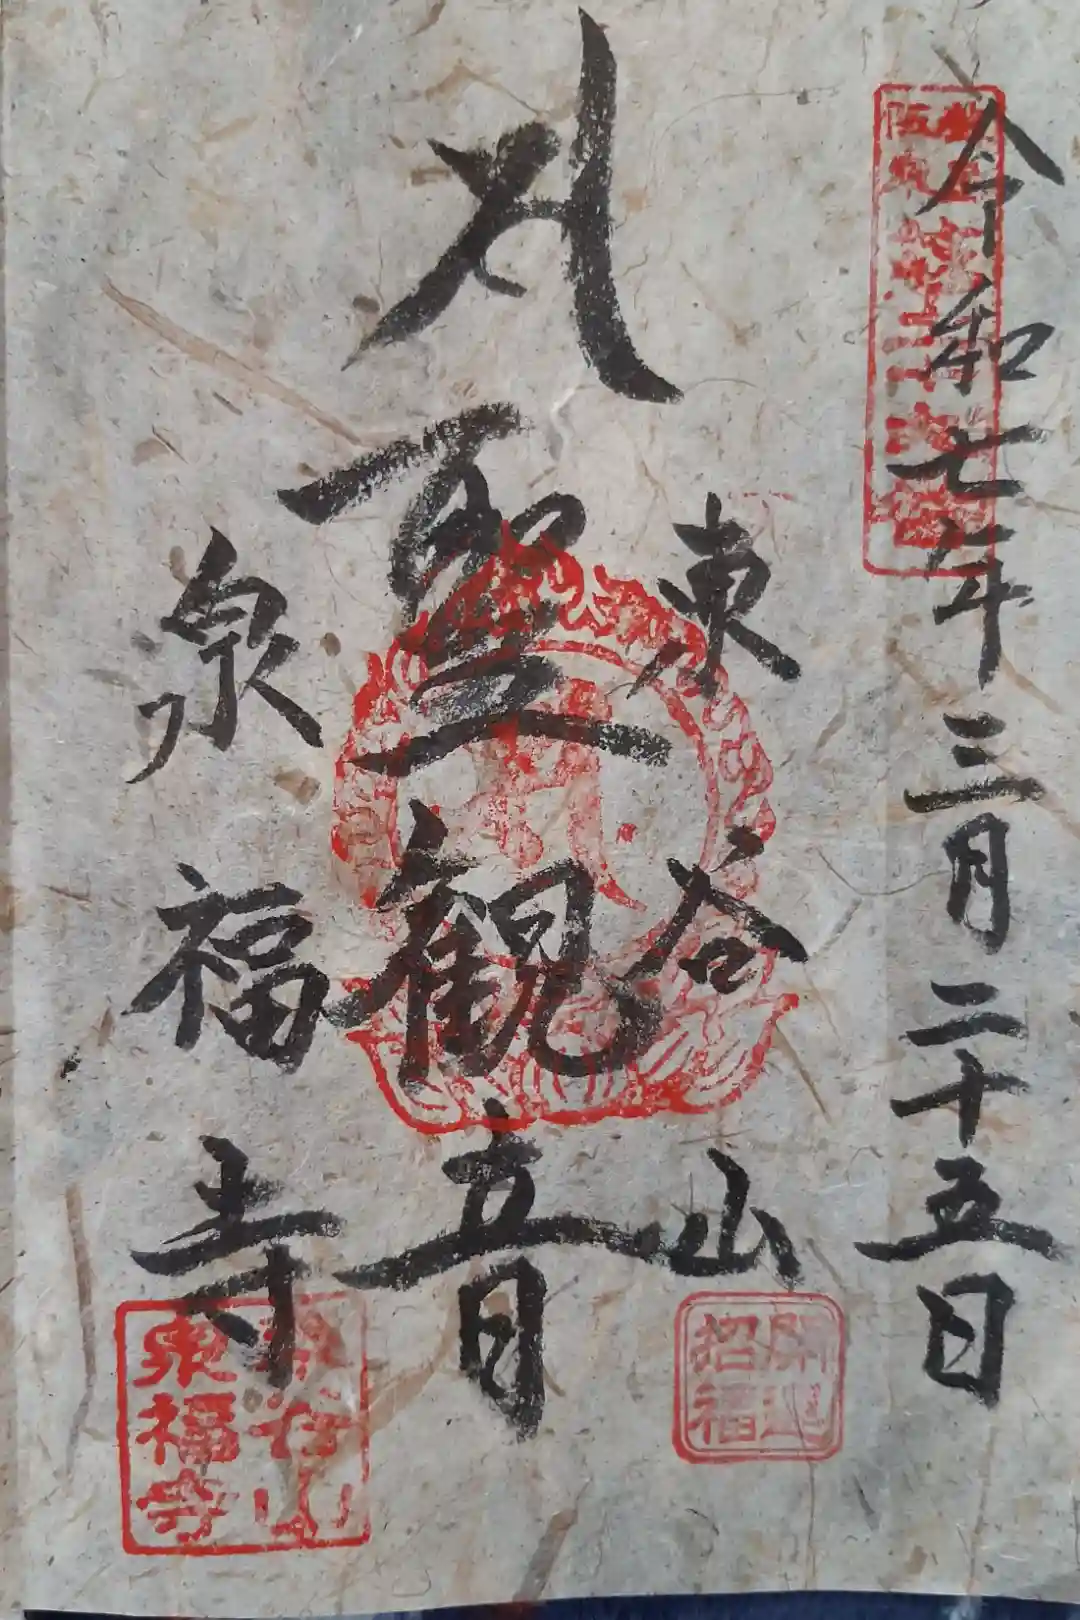 令和七年三月二十五日
東谷山
開運
招福
聖観音
泉福寺
東谷山
泉福寺